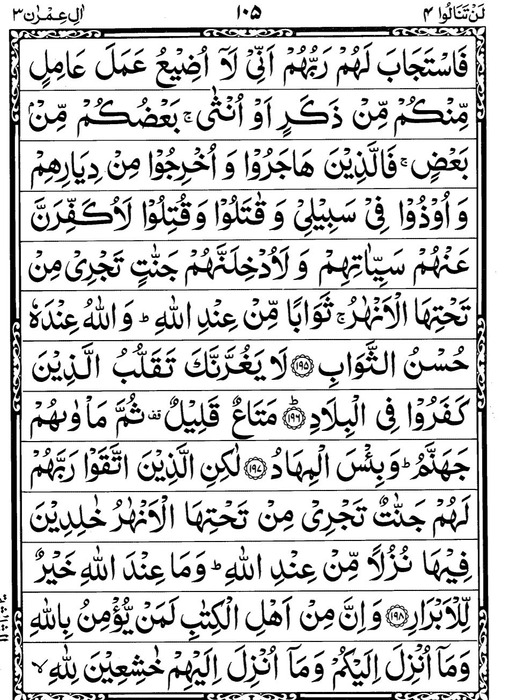 لَنْ تَنَالُوا ٤ ١٠٥ اٰلِ عِمْرٰن ٣
فَاسْتَجَابَ لَهُمْ رَبُّهُمْ اَنِّیْ لَاۤ اُضِیْعُ عَمَلَ عَامِلٍ
مِّنْكُمْ مِّنْ ذَكَرٍ اَوْ اُنْثٰی ۚ بَعْضُكُمْ مِّنْۢ
بَعْضٍ ۚ فَالَّذِیْنَ هَاجَرُوْا وَ اُخْرِجُوْا مِنْ دِیَارِهِمْ
وَ اُوْذُوْا فِیْ سَبِیْلِیْ وَ قٰتَلُوْا وَ قُتِلُوْا لَاُكَفِّرَنَّ
عَنْهُمْ سَیِّاٰتِهِمْ وَ لَاُدْخِلَنَّهُمْ جَنّٰتٍ تَجْرِیْ مِنْ
تَحْتِهَا الْاَنْهٰرُ ۚ ثَوَابًا مِّنْ عِنْدِ اللّٰهِ ؕ وَ اللّٰهُ عِنْدَهٗ
حُسْنُ الثَّوَابِ ﴿۱۹۵﴾ لَا یَغُرَّنَّكَ تَقَلُّبُ الَّذِیْنَ
كَفَرُوْا فِی الْبِلَادِ ﴿۱۹۶﴾ؕ مَتَاعٌ قَلِیْلٌ ۫ ثُمَّ مَاْوٰىهُمْ
جَهَنَّمُ ؕ وَ بِئْسَ الْمِهَادُ ﴿۱۹۷﴾ لٰكِنِ الَّذِیْنَ اتَّقَوْا رَبَّهُمْ
لَهُمْ جَنّٰتٌ تَجْرِیْ مِنْ تَحْتِهَا الْاَنْهٰرُ خٰلِدِیْنَ
فِیْهَا نُزُلًا مِّنْ عِنْدِ اللّٰهِ ؕ وَ مَا عِنْدَ اللّٰهِ خَیْرٌ
لِّلْاَبْرَارِ ﴿۱۹۸﴾ وَ اِنَّ مِنْ اَهْلِ الْكِتٰبِ لَمَنْ یُّؤْمِنُ بِاللّٰهِ
وَ مَاۤ اُنْزِلَ اِلَیْكُمْ وَ مَاۤ اُنْزِلَ اِلَیْهِمْ خٰشِعِیْنَ لِلّٰهِ ۙ